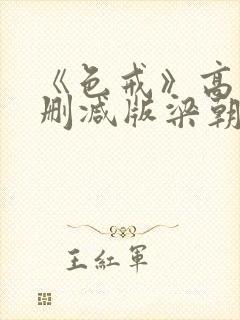 《色戒》高
删减版梁朝
王紅軍